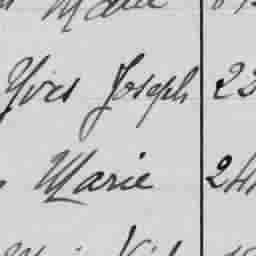 Marie
Yves Joseph 22
Marie 24